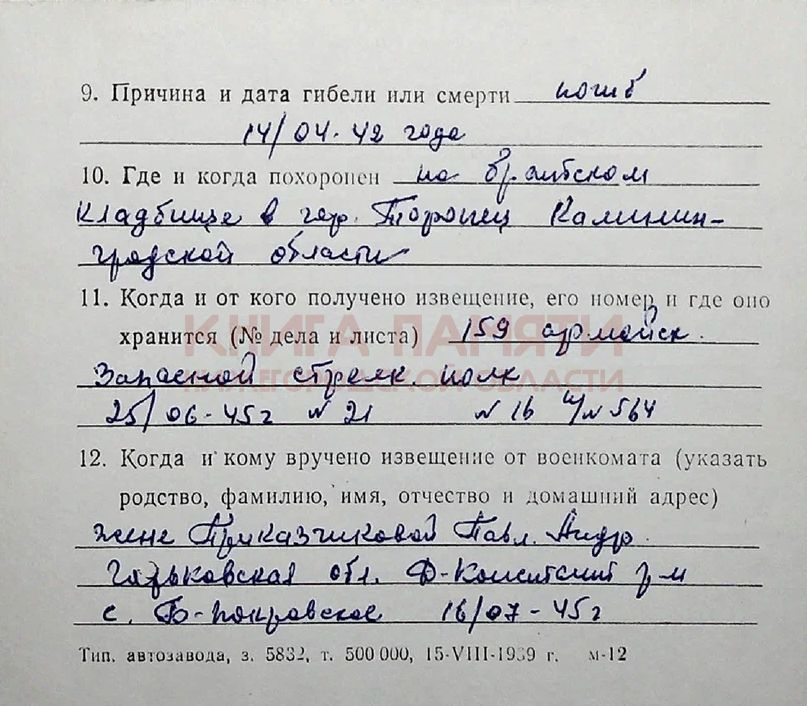 9. Причина и дата гибели или смерти погиб
14/04-42 года
10. Где и когда похоронен на братском
кладбище в гор. Торопец Калинин-
градской области
11. Когда и от кого получено извещение, его номер и где оно
хранится (№ дела и листа) 159 армейск.
КНИГА ПАМЯТИ
Запасной стрелк. полк
НИЖЕГОРОДСКОЙ ОБЛАСТИ
25/06-45г N 21 N 16 N 564
12. Когда и кому вручено извещение от военкомата (указать
родство, фамилию, имя, отчество и домашний адрес)
жене Приказчиковой Павл. Андр.
Горьковская обл. Д-Констинский р-н
с. Б-покровское 16/07-45г
Тип. автозавода, з. 5832, т. 500 000, 15-VIII-1939 г. м-12